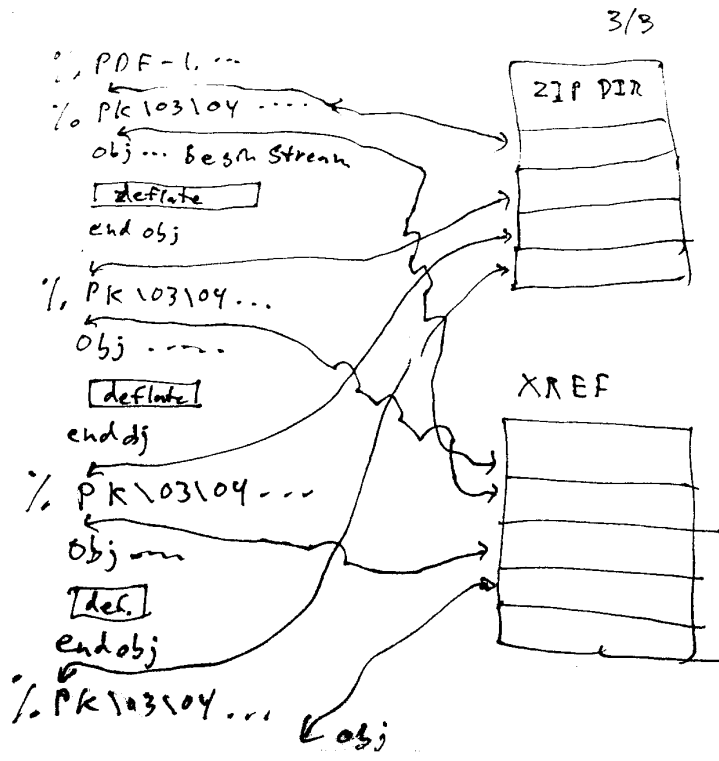 3/3
%PDF-1. ...
% PK\03\04 ....
obj ... Begin Stream
deflate
endobj
% PK\03\04 ...
Obj .....
deflate
endobj
% PK\03\04 ...
Obj ....
def.
endobj
% PK\03\04 ...
obj
ZIP DIR
XREF